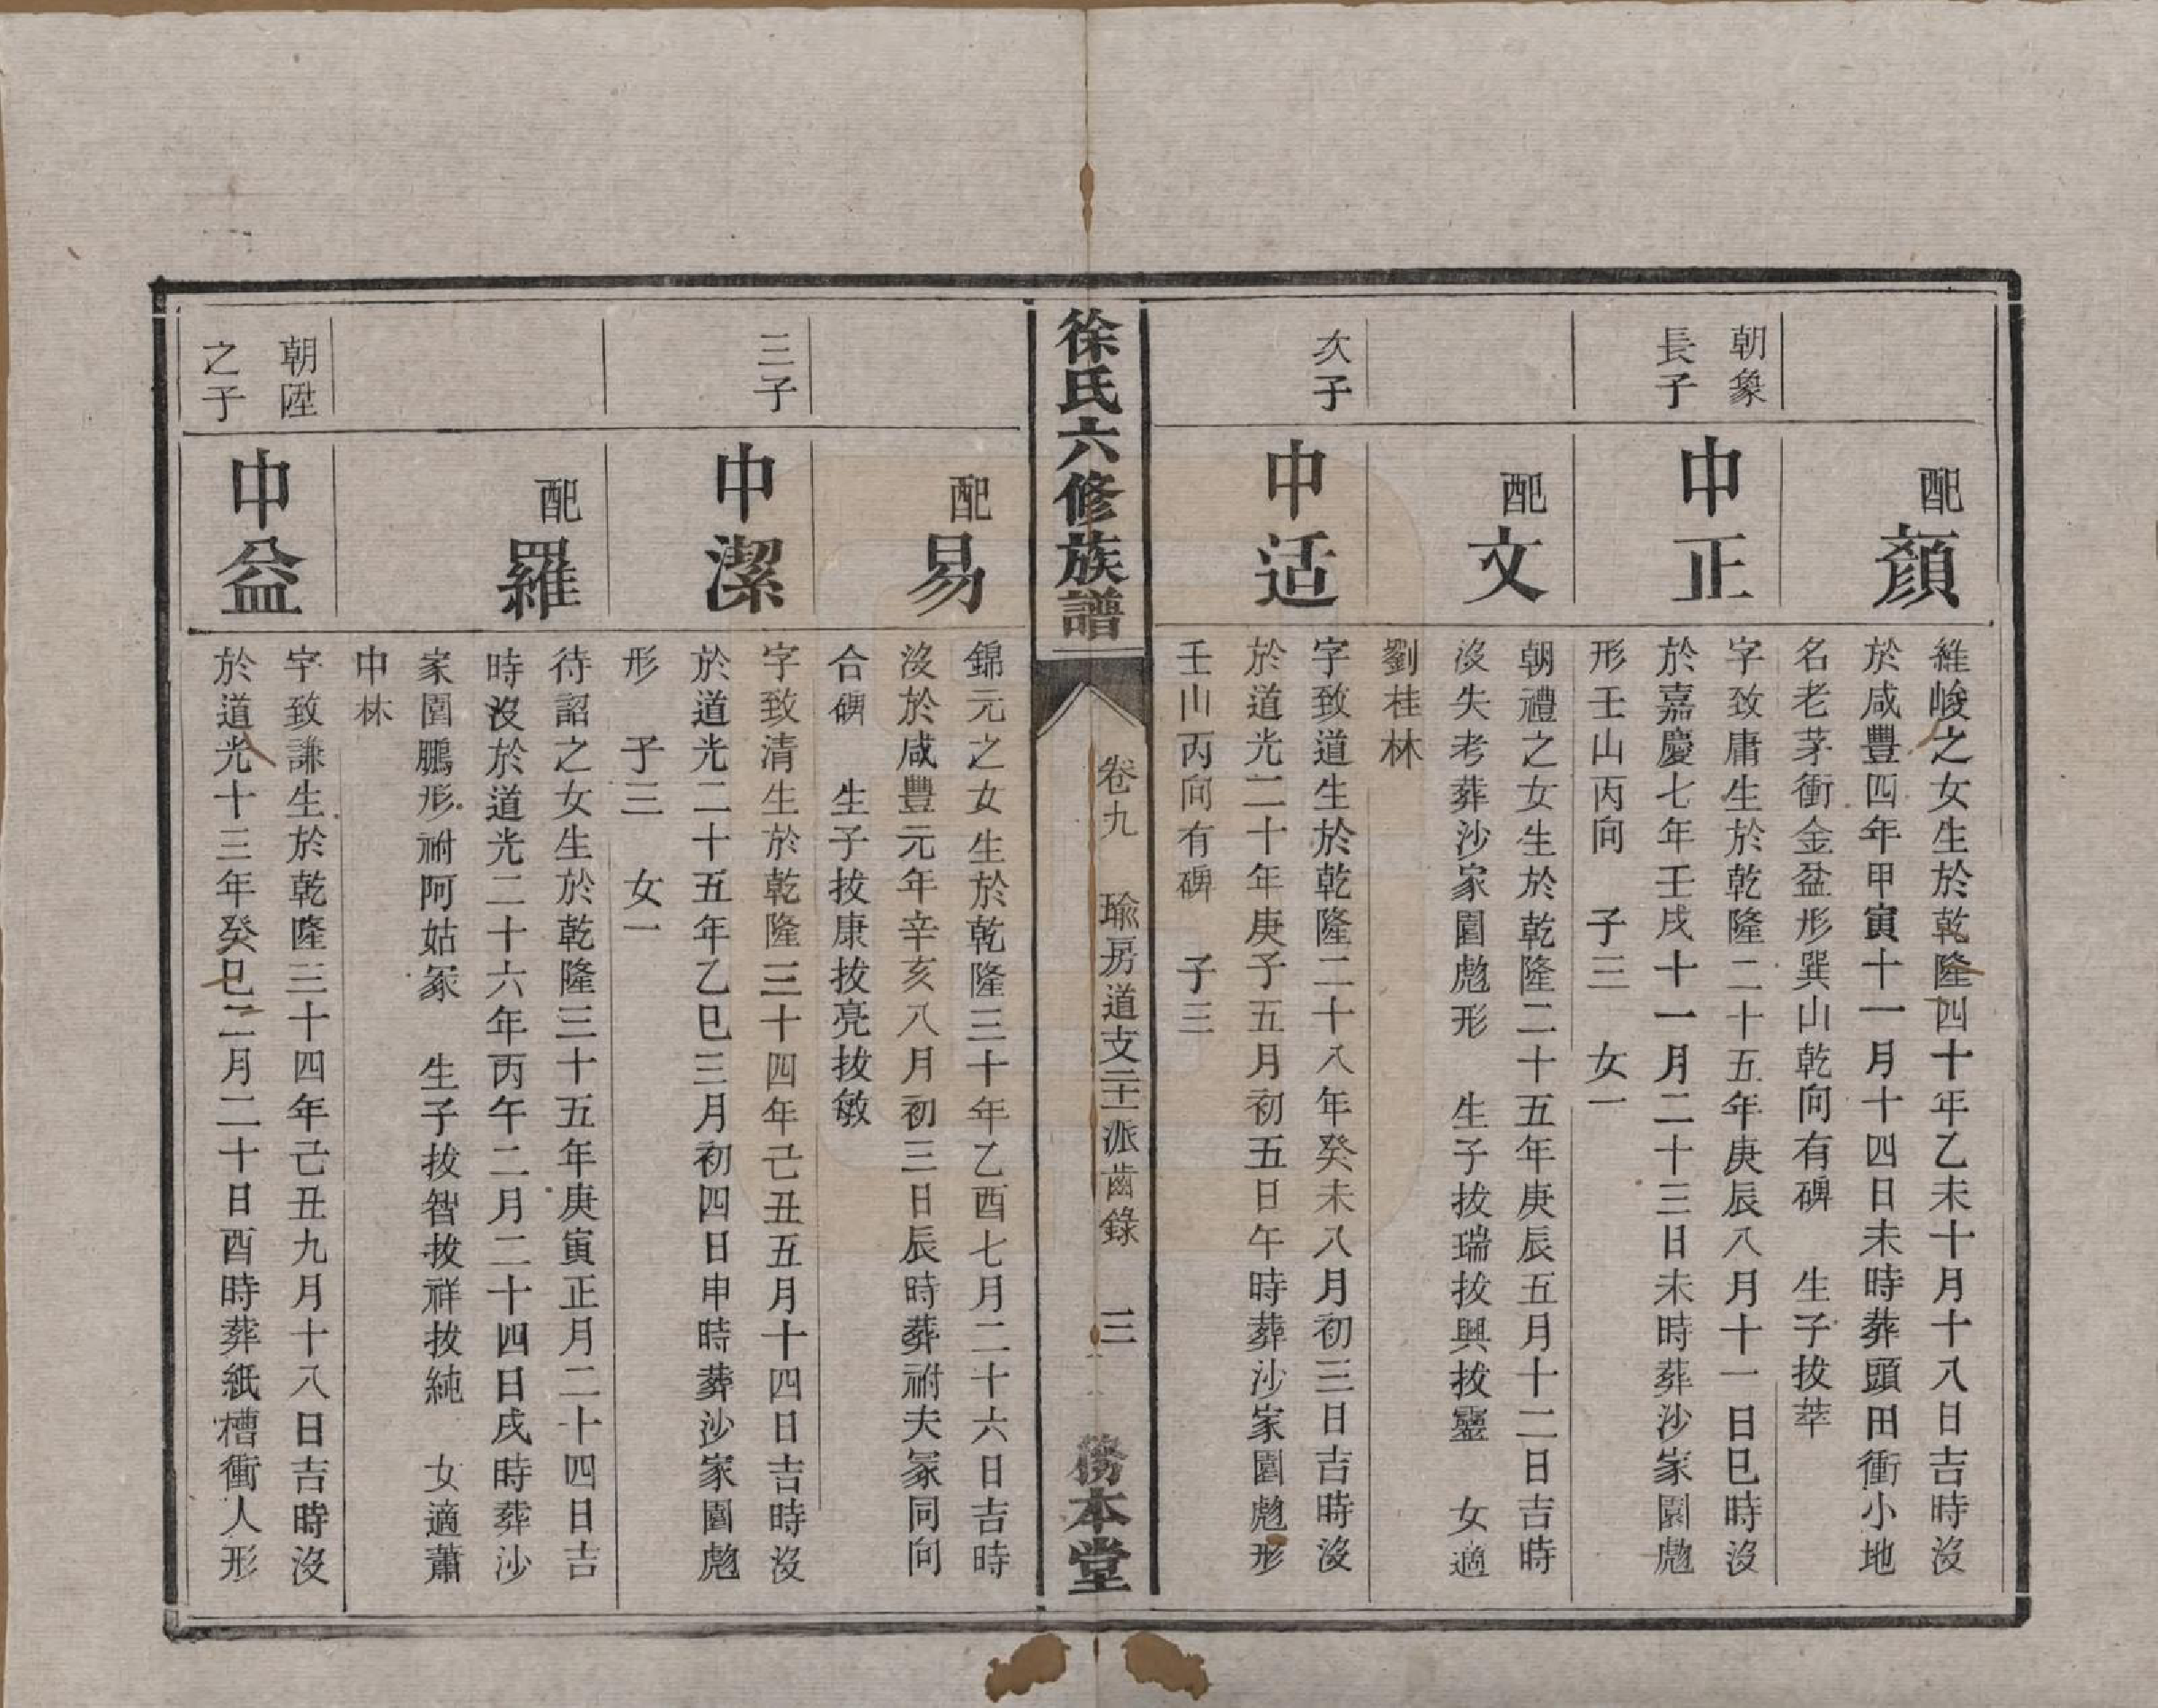 配顏
維峻之女生於乾隆四十年乙未十月十八日吉時沒
於咸豐四年甲寅十一月十四日未時葬頭田衝小地
名老茅衝金盆形巽山乾向有碑　生子拔萃
朝象
長子
中正
字致庸生於乾隆二十五年庚辰八月十一日巳時沒
於嘉慶七年壬戌十一月二十三日未時葬沙家園彪
形壬山丙向　子三　女一
配文
朝禮之女生於乾隆二十五年庚辰五月十二日吉時
沒失考葬沙家園彪形　生子拔瑞拔興拔靈　女適
劉桂林
次子
中适
字致道生於乾隆二十八年癸未八月初三日吉時沒
於道光二十年庚子五月初五日午時葬沙家園彪形
壬山丙向有碑　子三
徐氏六修族譜
卷九　瑜房道支二十一派齒錄　三
務本堂
配易
錦元之女生於乾隆三十年乙酉七月二十六日吉時
沒於咸豐元年辛亥八月初三日辰時葬祔夫冢同向
合碑　生子拔康拔亮拔敏
三子
中潔
字致清生於乾隆三十四年己丑五月十四日吉時沒
於道光二十五年乙巳三月初四日申時葬沙家園彪
形　子三　女一
配羅
待詔之女生於乾隆三十五年庚寅正月二十四日吉
時沒於道光二十六年丙午二月二十四日戌時葬沙
家園鵬形祔阿姑冢　生子拔智拔祥拔純　女適蕭
中林
朝陞
之子
中益
字致謙生於乾隆三十四年己丑九月十八日吉時沒
於道光十三年癸巳二月二十日酉時葬紙槽衝人形